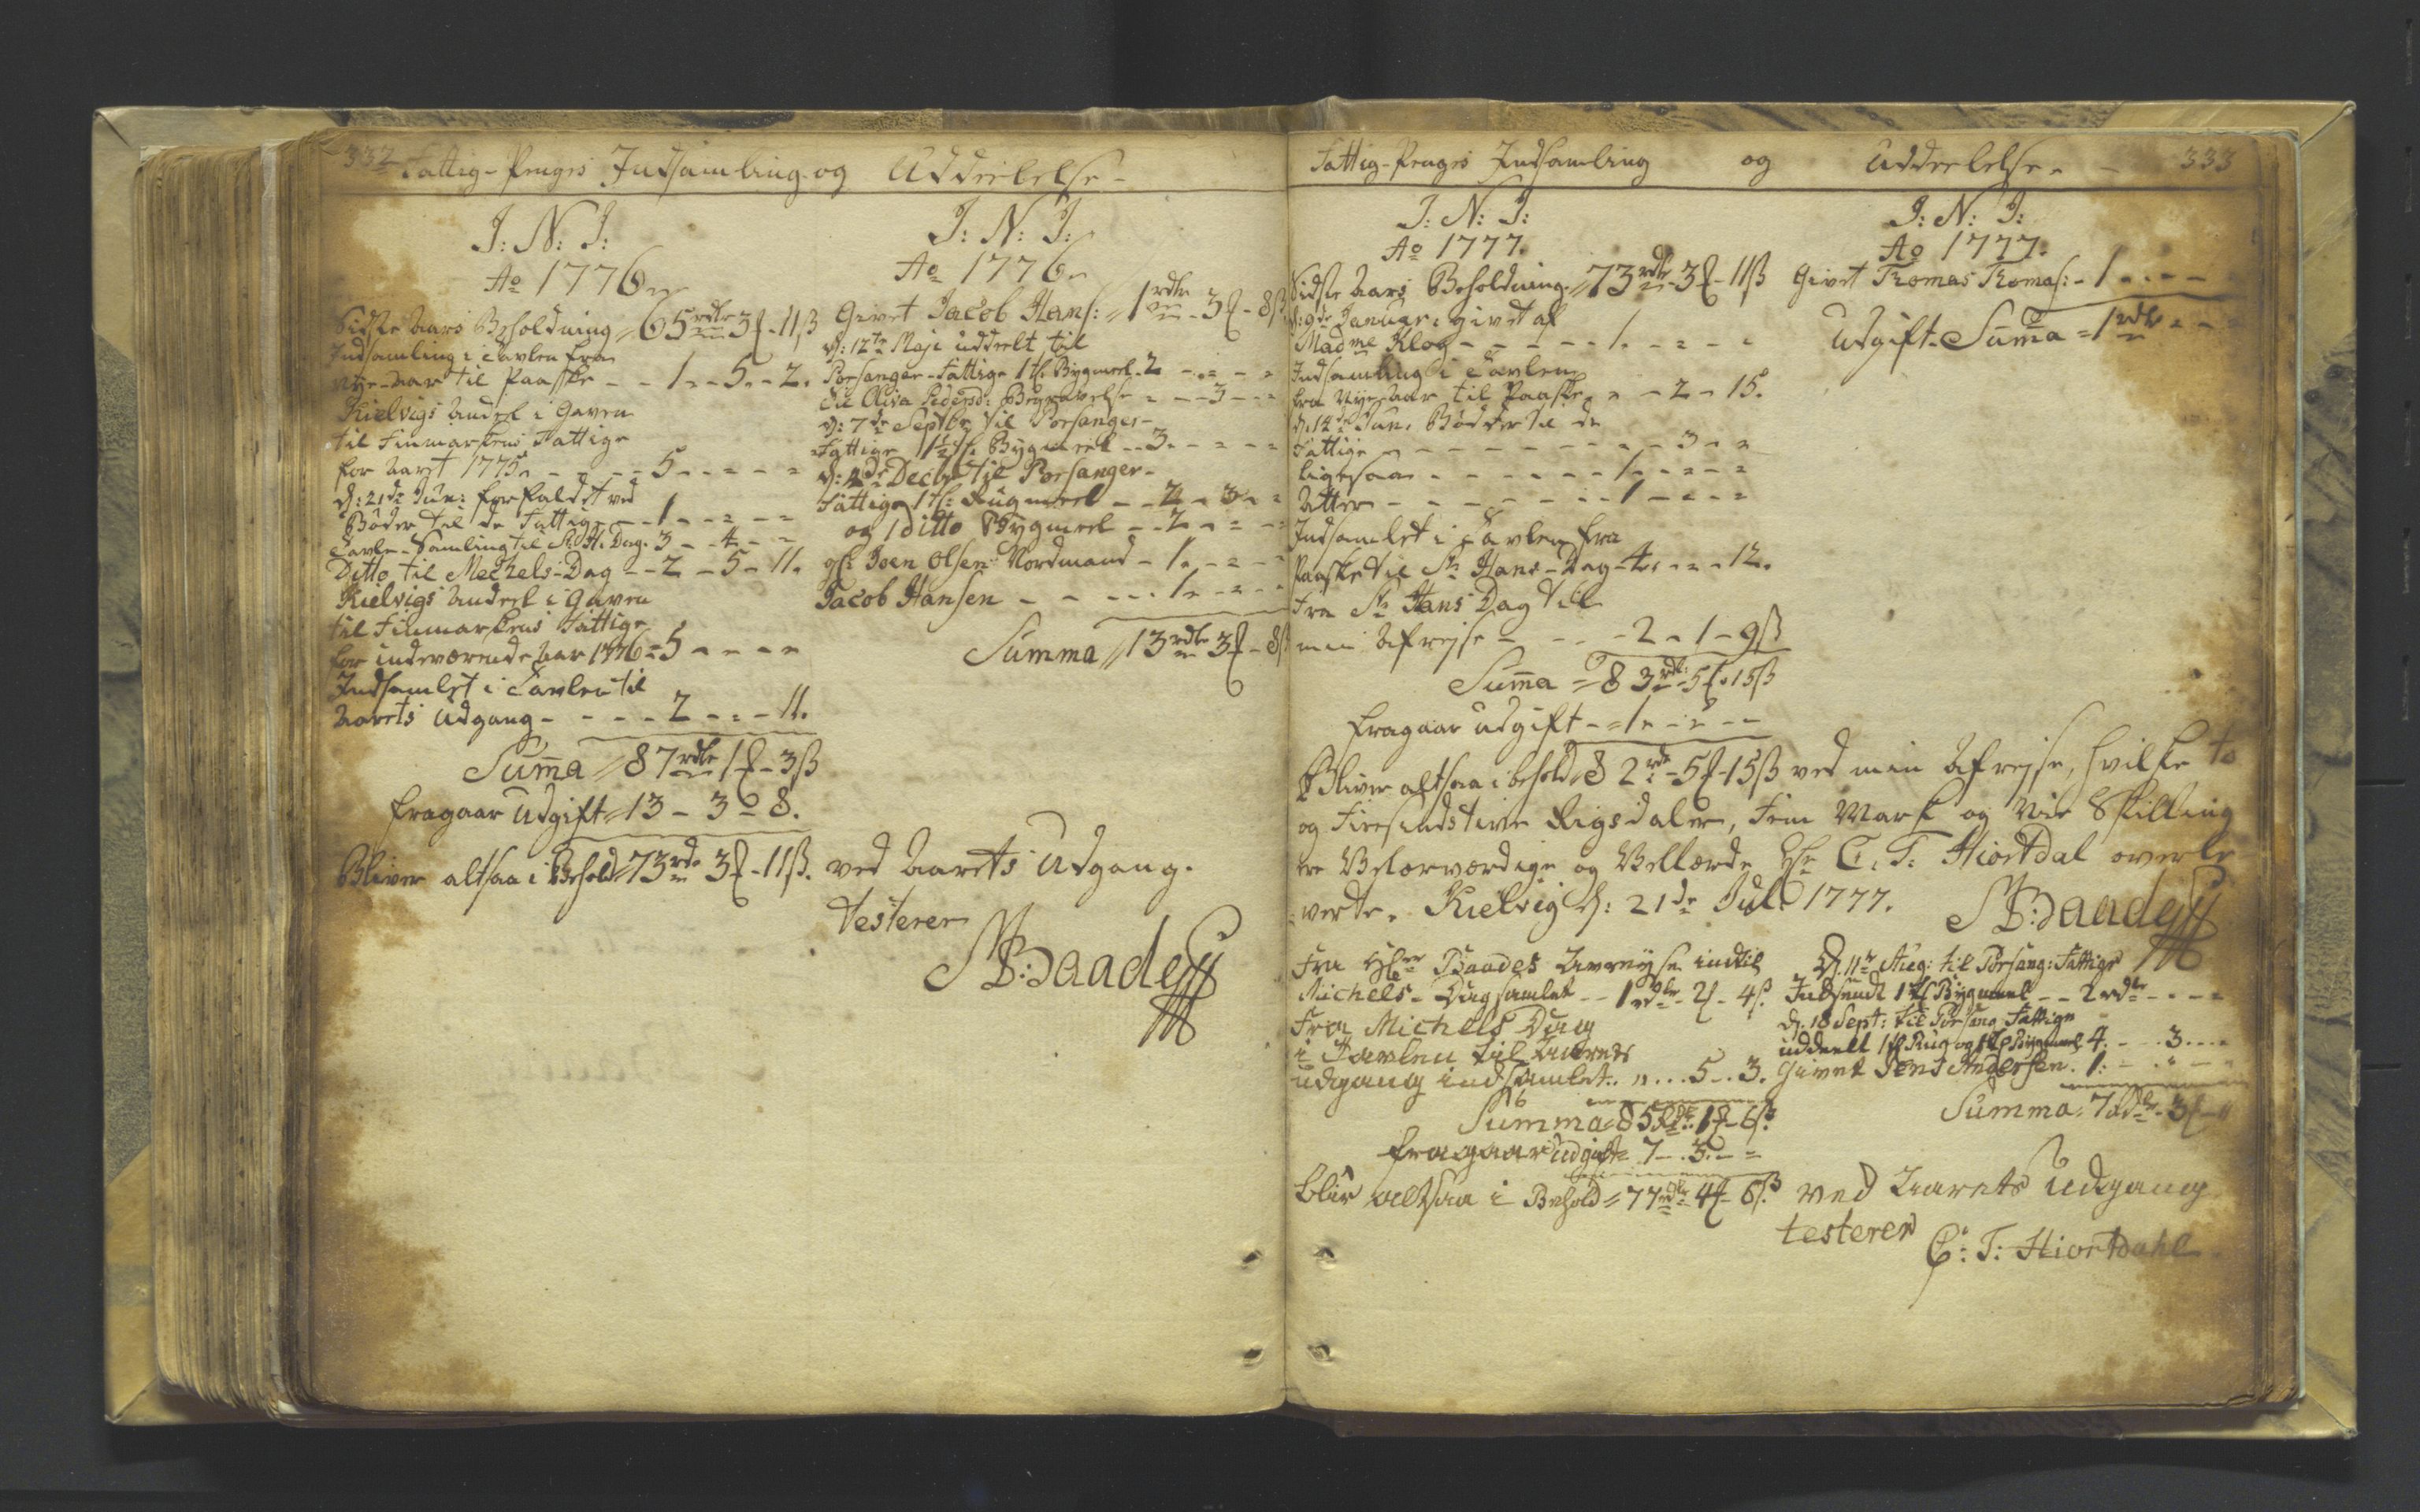 332 Fattig-Penges Indsamling og Uddeelelse
J: N: J:
Ao 1776.
Sidste Aars Beholdning 65 rdlr 3 ₰ - 11 ß
Indsamling i Tavlen fra
Nye-Aar til Paaske - - 1 - - 5 - - 2.
Kielvigs Andeel i Gaven
til Finmarkens Fattige
for Aaret 1775 - - - - 5 - - - -
d: 21de Jun: forfaldet ved
Bøder til de Fattige - - 1 - - - -
Tavle-Samling til St. H. Dag. 3 - - 4 - -
Ditto til Mechels-Dag - - 2 - 5 - 11.
Kielvigs Andeel i Gaven
til Finmarkens Fattige
for indeværende Aar 1776 = 5 - - - -
Indsamlet i Tavlen til
Aarets Udgang - - - - 2 - - - 11.
Sum̄a 87 rdlr 1 ₰ - 3 ß
fragaar Udgift 13 - 3 - 8.
Bliver altsaa i Behold 73 rdr 3 ₰ - 11 ß. ved Aarets Udgang.
testerer
MB: Baade
J: N: J:
Ao 1776.
Givet Jacob Hans: 1 rdlr - 3 ₰ - 8 ß
d: 12te Maji uddelt til
Porsanger-Fattige 1 t. Bygmeel. 2 - - - -
til Oliva Pedersd: Begravelse - - - 3 - -
d: 7de Septbr til Porsanger-
Fattige 1½ t. Bygmeel - - 3 - - - -
d: 2de Decbr til Porsanger-
Fattige 1 t: Rugmeel - - 2 - 3 - -
og 1 ditto Bygmeel - - 2 - - - -
Joen Olsen Nordmand - 1 - - - -
Jacob Hansen - - - - - 1 - - - -
Summa 13 rdlr 3 ₰ - 8 ß
Fattig-Penges Indsamling og Uddeelelse. - 333
J: N: J:
Ao 1777.
Sidste Aars Beholdning 73 rdlr - 3 ₰ - 11 ß
d: 9de Januar: givet af
Madme Klog - - - - - 1. - - - -
Indsamling i Tavlen
fra Nye-Aar til Paaske - - 2 - 15.
d. 12de Jun. Bøder til de
Fattige - - - - - - - - 3 - -
ligesaa - - - - - - 1 - - - -
Atter - - - - - - - 1 - - - -
Indsamlet i Tavlen fra
Paaske til St: Hans-Dag - 4. - - - 12.
fra St: Hans Dag til
min Afrejse - - - - 2 - 1 - 9 ß
Sum̄a = 83 rdr: 5 ₰ - 15 ß
fragaar Udgift - - 1 - - - -
J: N: J:
Ao 1777.
Givet Thomas Thomas: - 1 - - - -
Udgift-Sum̄a = 1 rdlr - - -
Bliver altsaa i behold 82 rdr - 5 ₰ - 15 ß ved min Afrejse, hvilke to
og Firesindstive Rigsdaler, Fem Mark og Skilling
Velærværdige og Vellærde Hr: C. T. Hiortdal overle
verte. Kielvig d: 21de Juli 1777. MB: Baade
Fra Hr Baades Avrejse indtil
Michels-Dag samlet - - 1 rdlr - 2 ₰ - 4 ß
Fra Michels Dag
i Tavlen til Aarets
udgang indsamlet. . . . 5 - . 3.
Summa 85 Rdr: 1 ₰ - 6 ß
fragaar udgift 7 - . 3. - -
d. 11te Aug: til Porsang: Fattige
Indsendt 1 t Bygmeel - - 2 rdlr - - -
d. 18 Sept: til Porsang Fattige
uddeelt 1 t Rug og 1 t Bygmeel 4. - - 3. . . .
Givet Jens Andersen. 1: - - - -
Summa: 7 rdlr - 3 ₰ -
blir altsaa i Behold = 77 rdlr - 4 ₰ - 6 ß ved Aarets Udgang
testerer
C: T: Hiortdahl